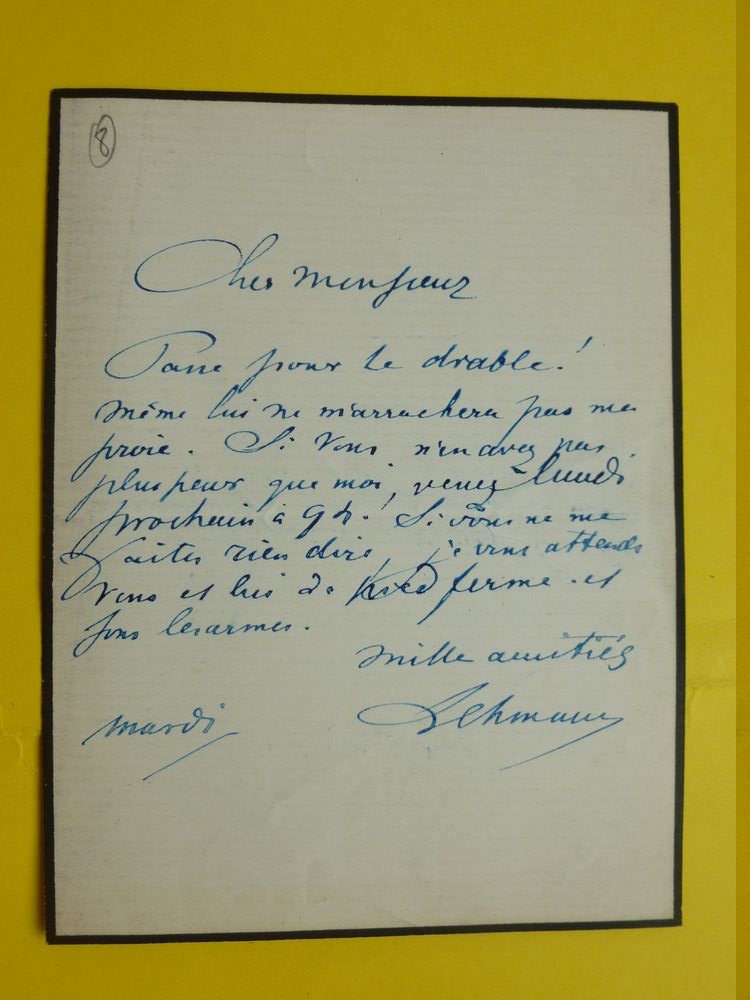 8
Cher Monsieur
Passe pour le diable !
Même lui ne m'arrachera pas ma
proie. Si vous n'en avez pas
plus peur que moi, venez lundi
prochain à 9 h. Si vous ne me
faites rien dire, je vous attends
vous et lui de pied ferme et
sous les armes.
Mille amitiés
Lehmann
mardi